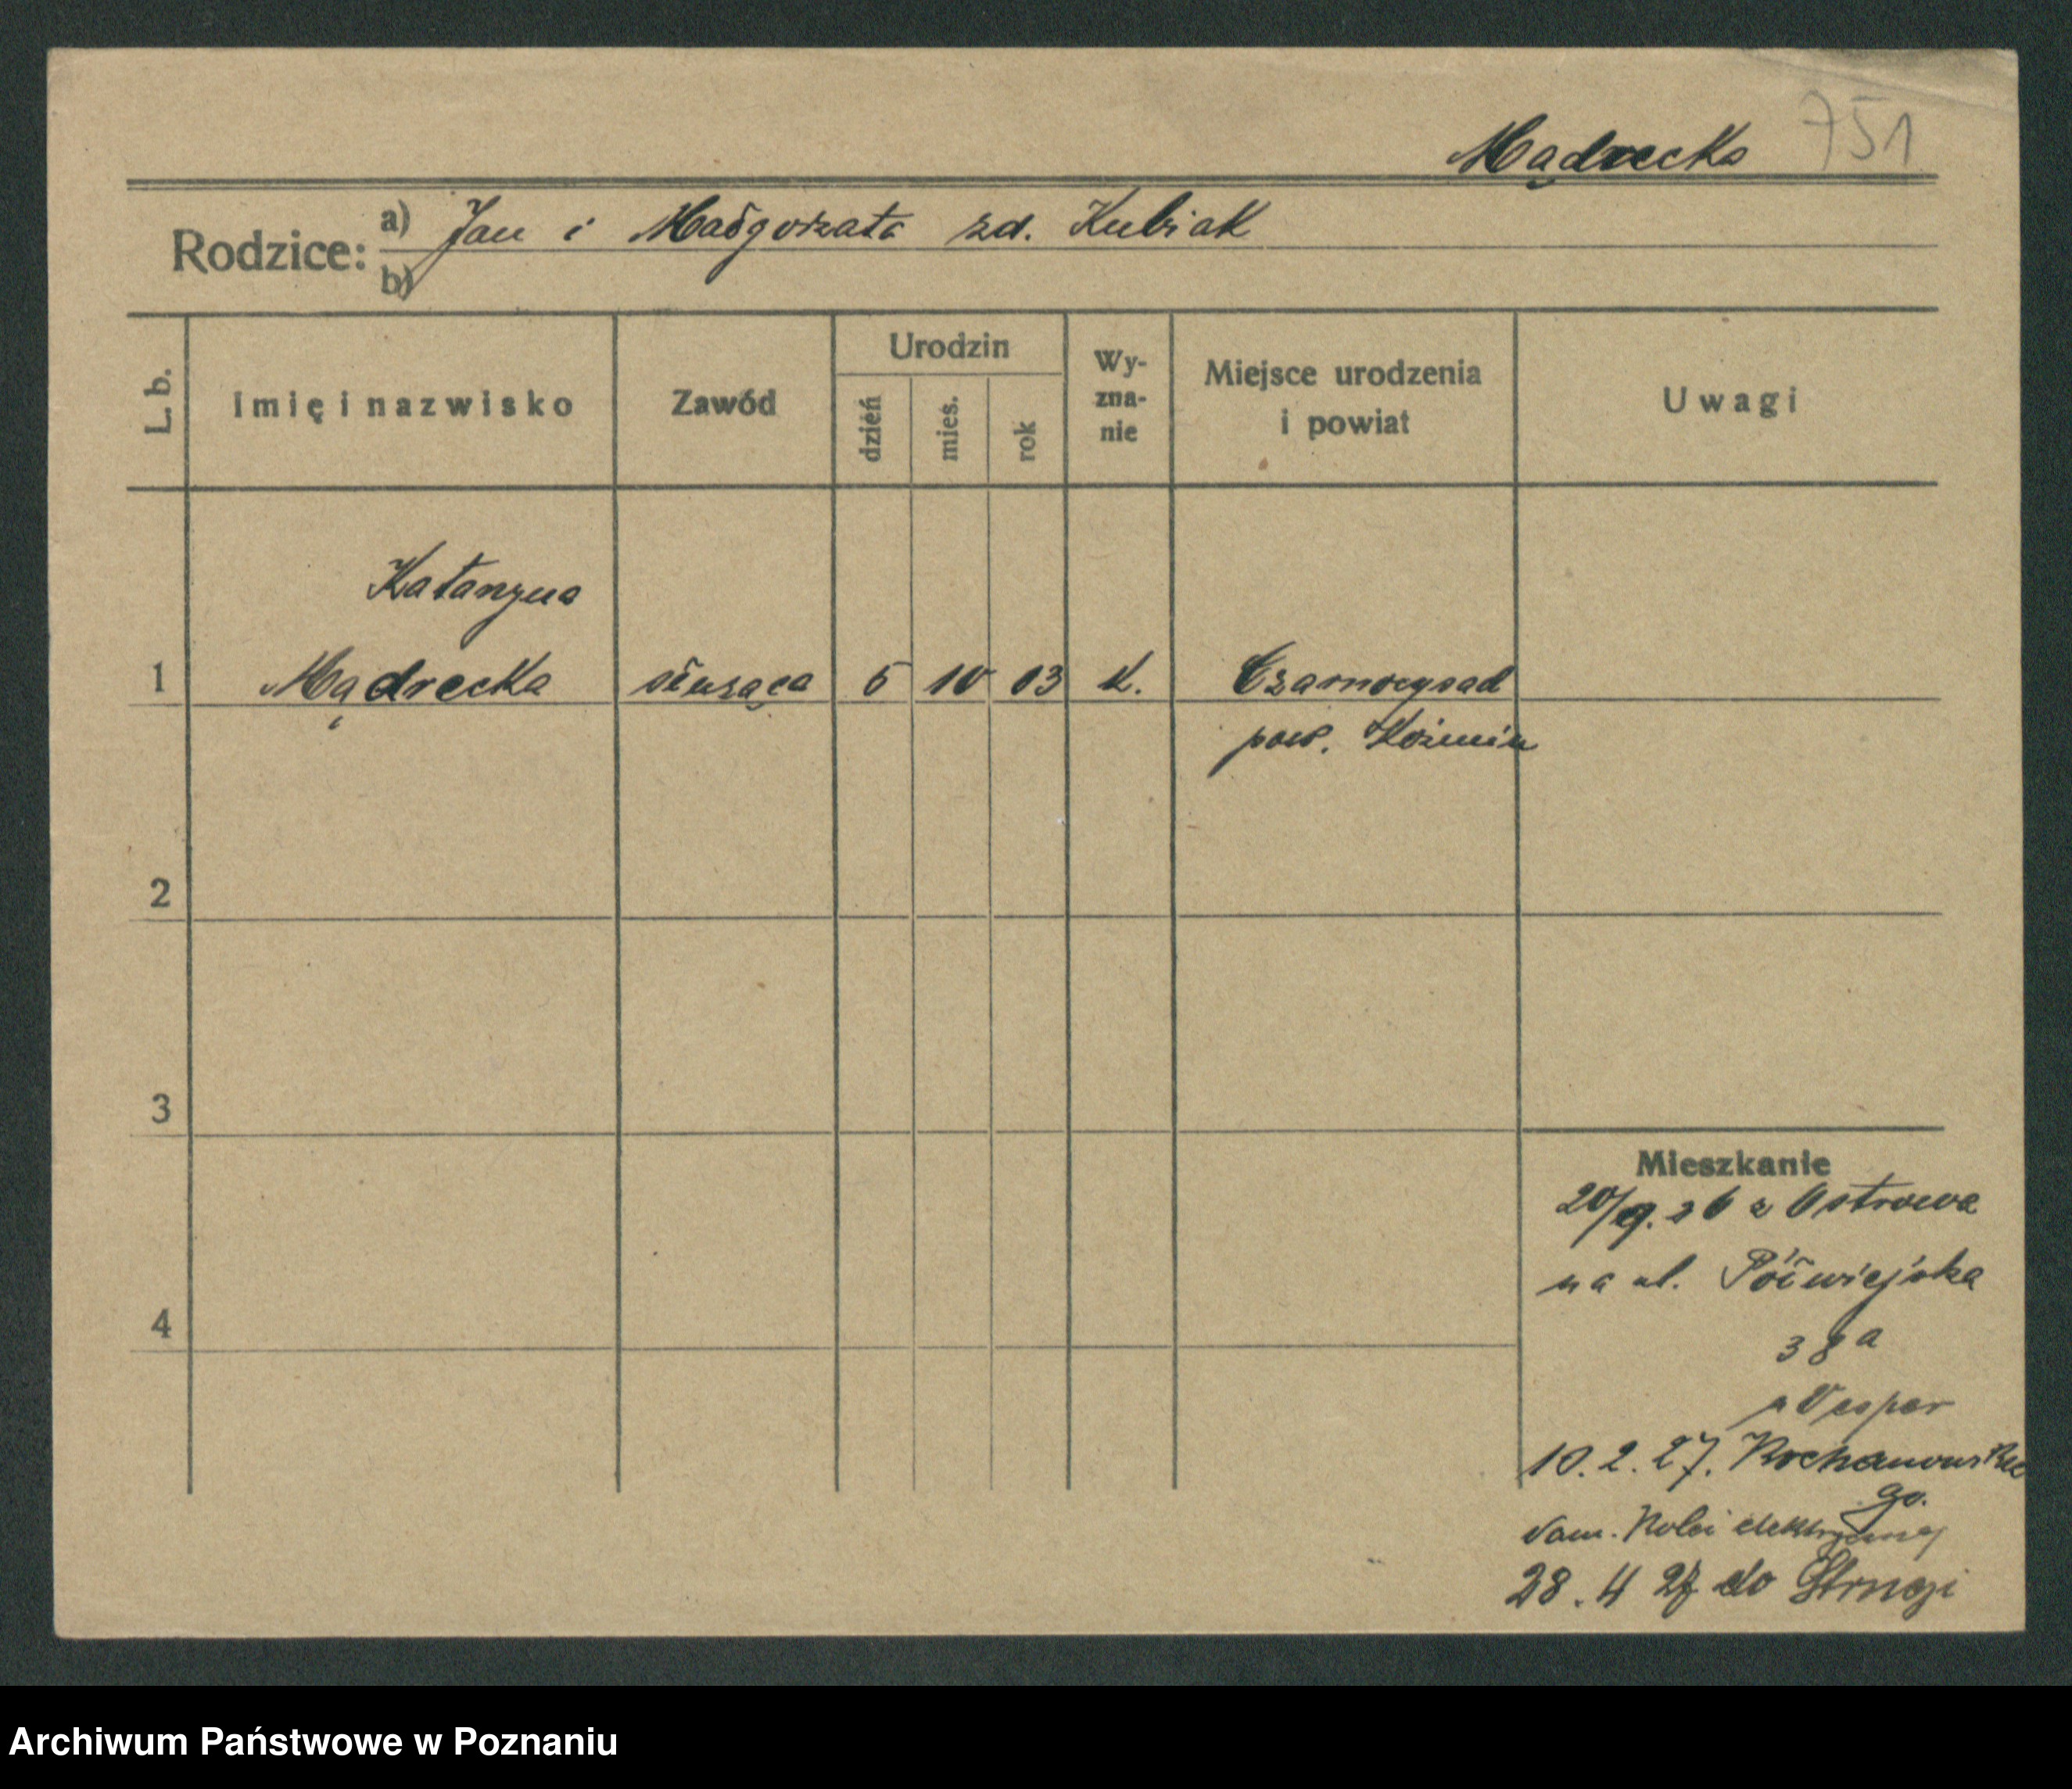 Mądrecka 751
Rodzice: a) Jan i Małgorzata zd. Kubiak
b)
L. b. Imię i nazwisko Zawód Urodzin dzień mies. rok Wy-zna-nie Miejsce urodzenia i powiat Uwagi
Katarzyna
1 Mądrecka służąca 5 10 03 k. Czarnysad
pow. Koźmin
2
3
4
Mieszkanie
20/9. 26 z Ostrowa
na ul. Półwiejska
38a
Vesper
10.2.27. Kochanowskie
go.
Kolei elektrycznej
28.4 27 do
Archiwum Państwowe w Poznaniu